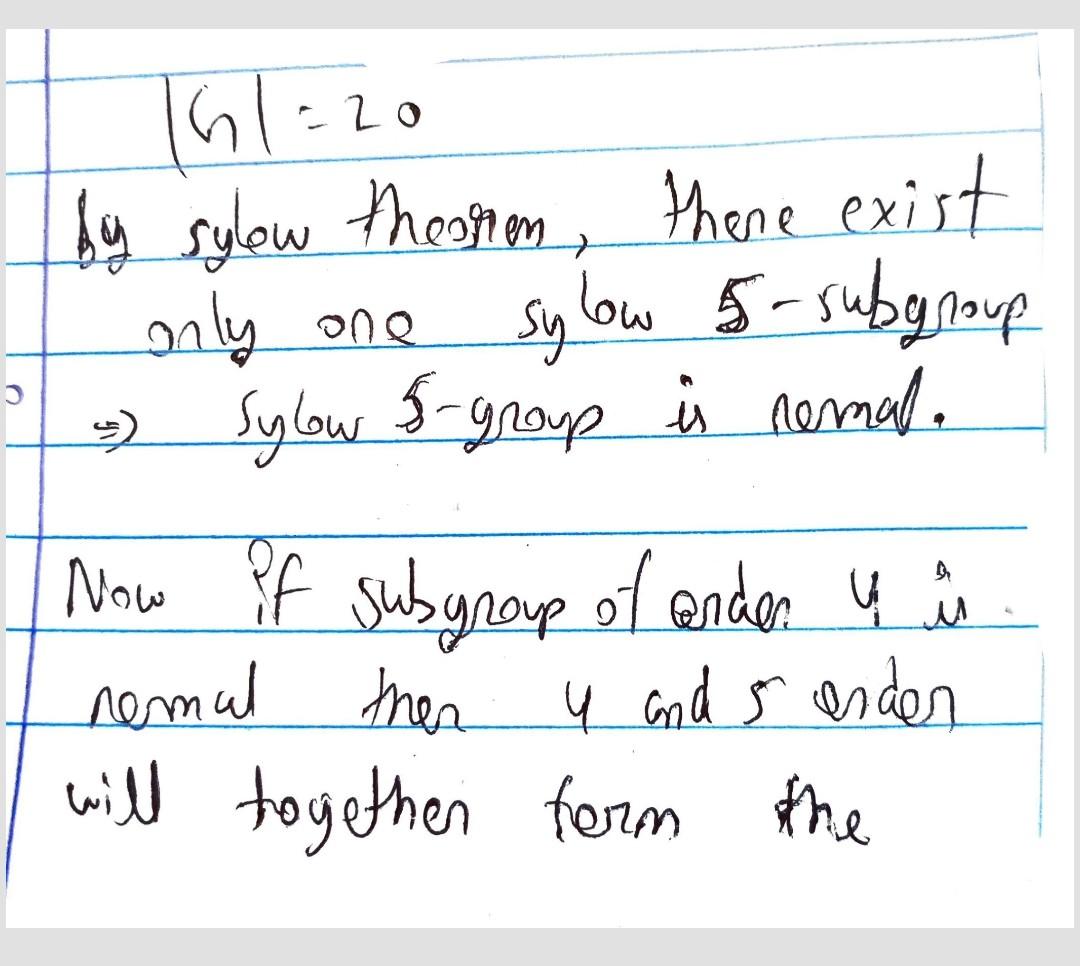 |G| = 20
by sylow theorem, there exist
only one sylow 5-subgroup
⇒ Sylow 5-group is normal.
Now if subgroup of order 4 is
normal then 4 and 5 order
will together form the